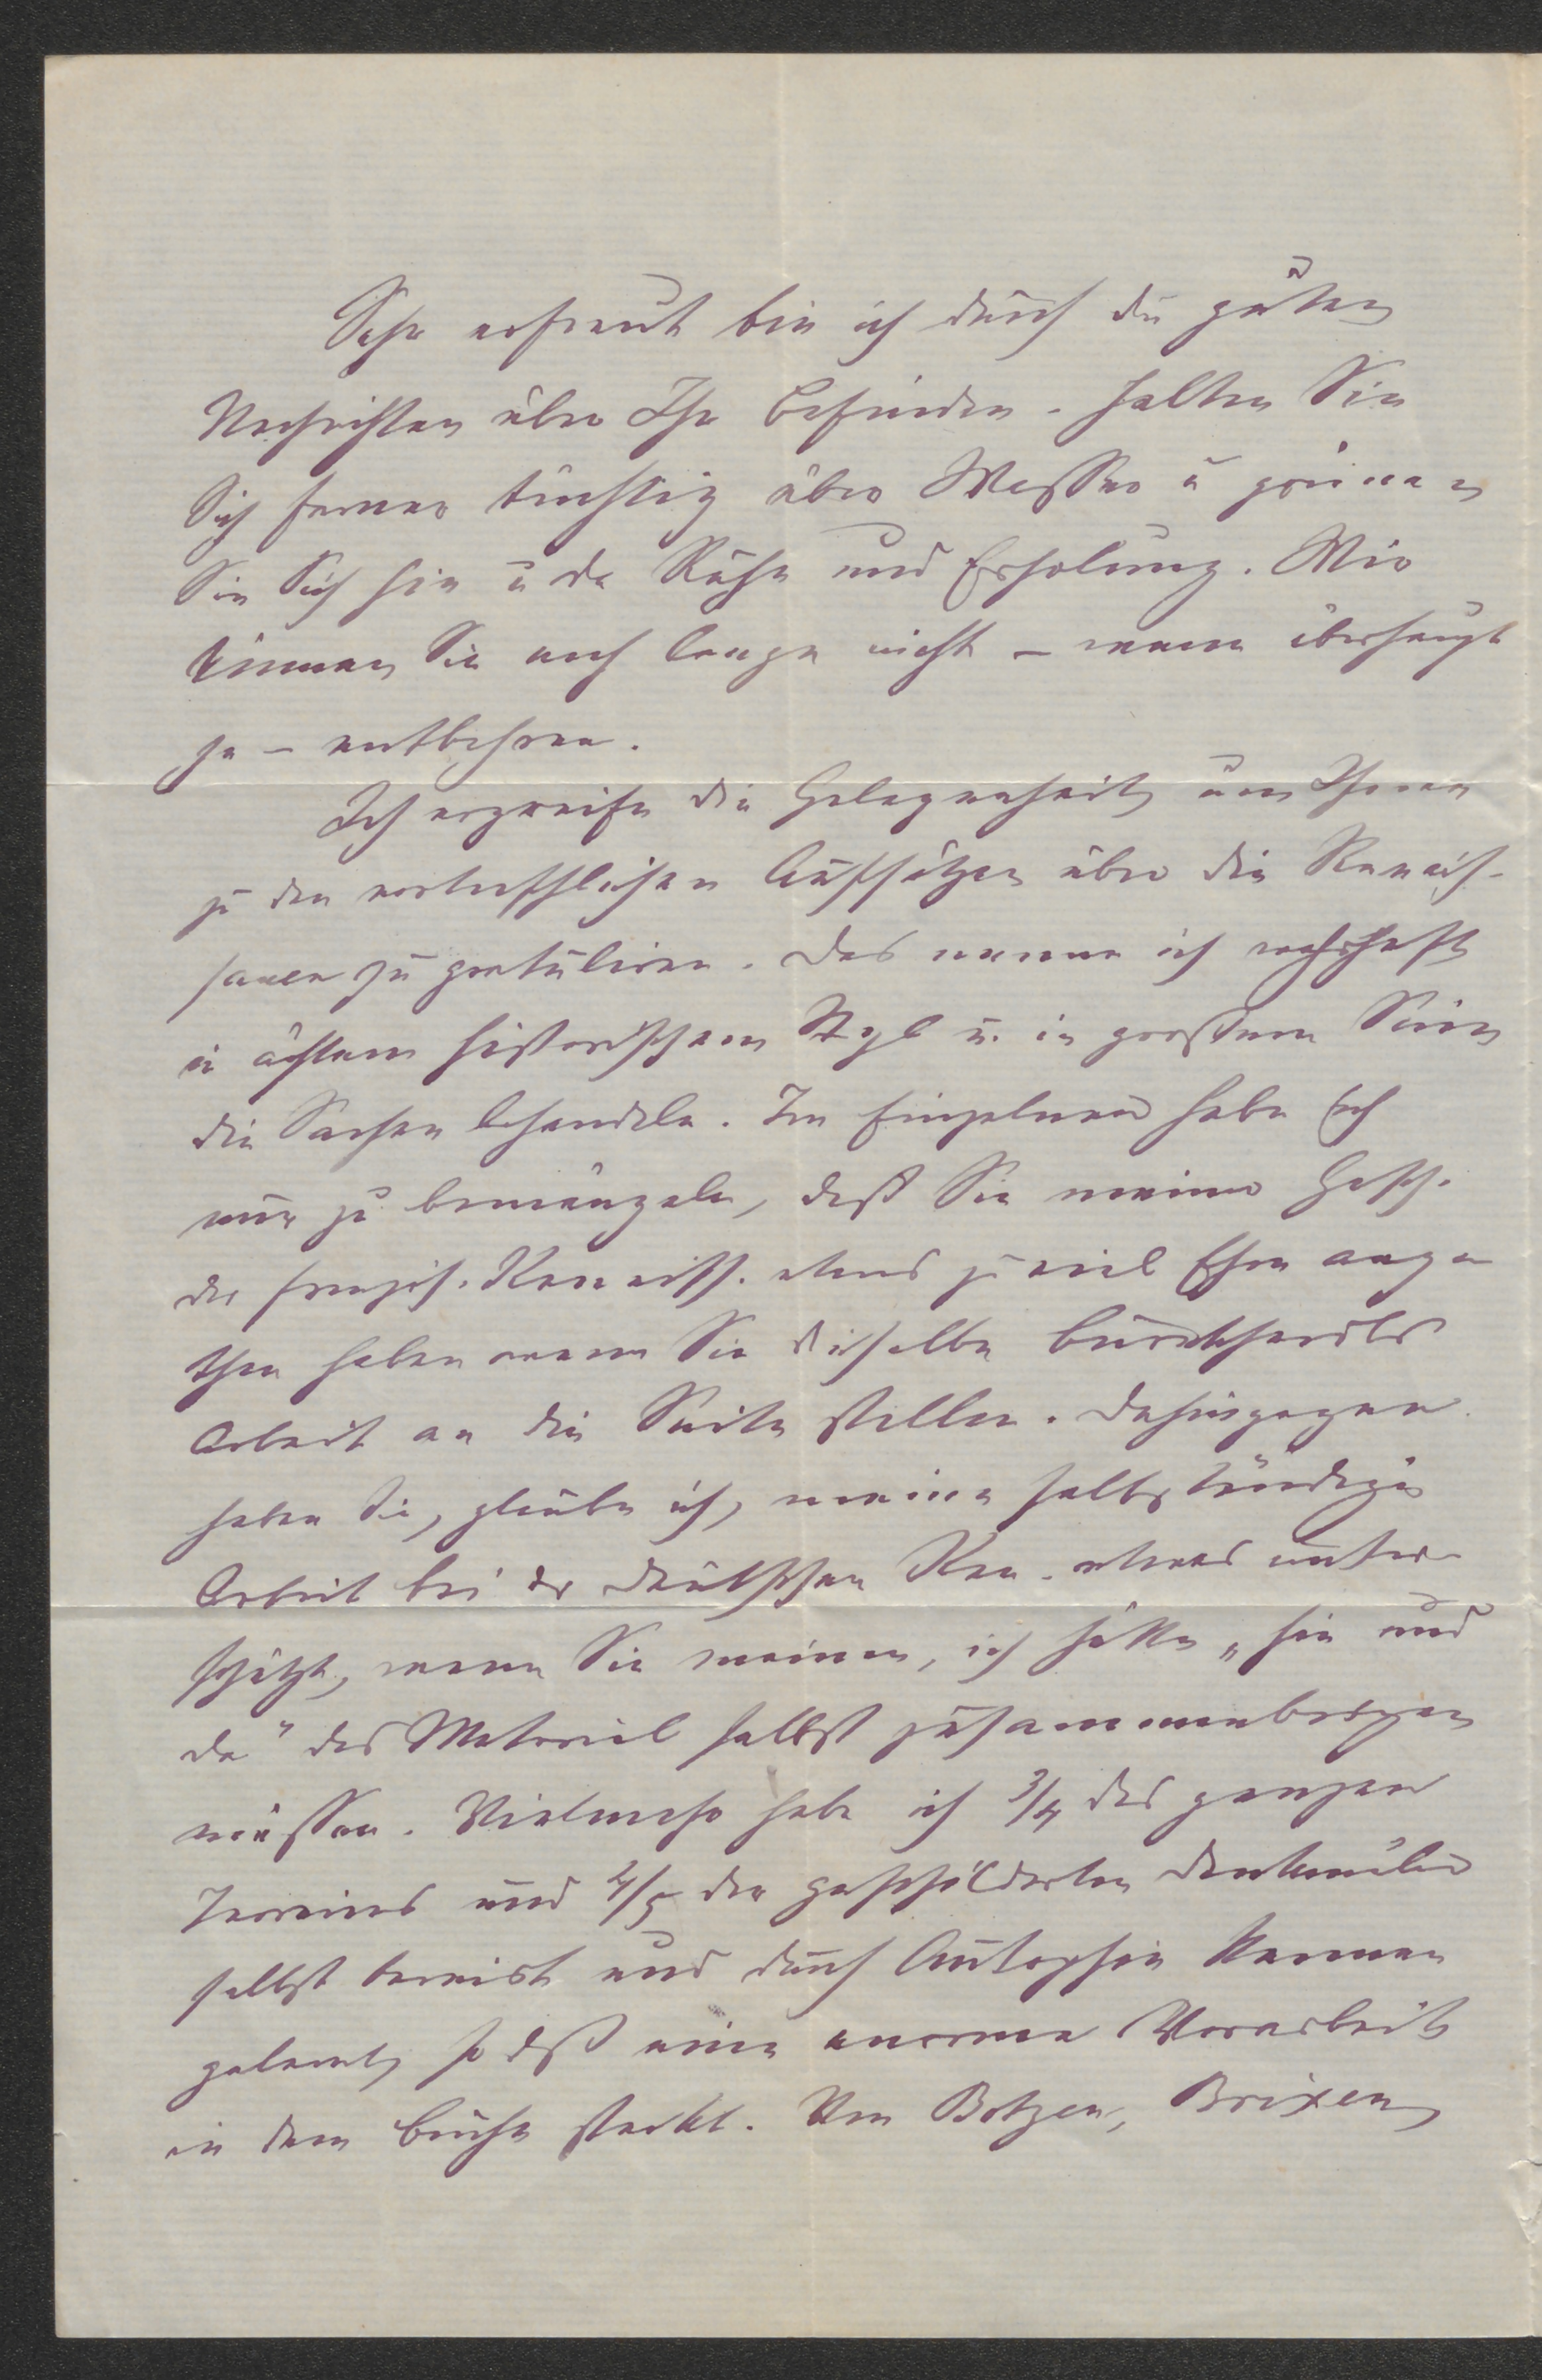 Sehr erfreut bin ich durch die guten
Nachrichten über Ihr Befinden. Halten Sie
Sich ferner tüchtig über Wasser u gönnen
Sie Sich hie u da Ruhe und Erholung. Wir
können Sie noch lange nicht – wenn überhaupt
je – entbehren.
Ich ergreife die Gelegenheit, um Ihnen
zu den vortrefflichen Aufsätzen über die Renais-
sance zu gratuliren. Das nenne ich wahrhaft
in ächtem historischem Styl u. in großem Sinn
die Sachen behandeln. Im Einzelnen habe ich
nur zu bemängeln, daß Sie meiner Gesch.
der französ. Renaiss. etwas zu viel Ehre ange
than haben wenn Sie dieselbe Burckhardts
Arbeit an die Seite stellen. Dahingegen
haben Sie, glaube ich, meine selbständige
Arbeit bei der deutschen Ren. etwas unter-
schätzt, wenn Sie meinen, ich hätte „hie und
da" das Material selbst zusammenbringen
müssen. Vielmehr habe ich 3/4 des ganzen
Terrains und 4/5 der geschilderten Denkmäler
selbst bereist und durch Autopsie kennen
gelernt, so daß eine enorme Vorarbeit
in dem Buche steckt. Von Botzen, Brixen,